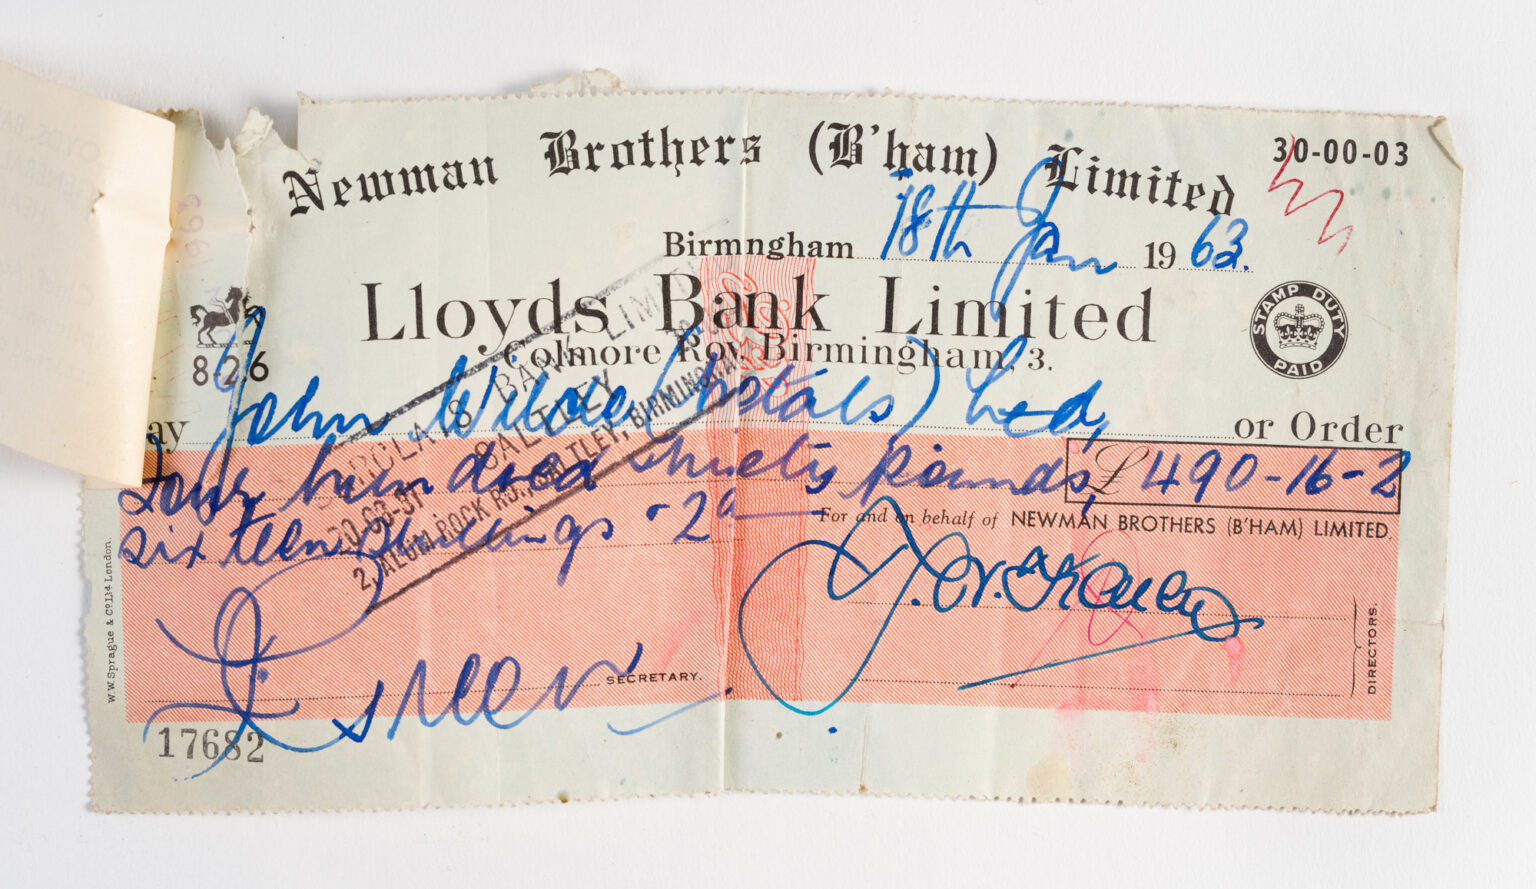 Newman Brothers (B'ham) Limited
30-00-03
Birmngham 18th Jan 1963.
Lloyds Bank Limited
Colmore Row, Birmingham, 3.
STAMP DUTY PAID
8-26
ay John Wilde (Metals) Ltd, or Order
Four hundred & ninety pounds,
£490-16-2
sixteen shillings - 2d
BARCLAYS BANK LIMITED
SALTLEY
20-08-31
2, ALUM ROCK RD., SALTLEY, BIRMINGHAM
For and on behalf of NEWMAN BROTHERS (B'HAM) LIMITED.
SECRETARY.
DIRECTORS.
W.W. Sprague & Co. Ltd. London.
17682